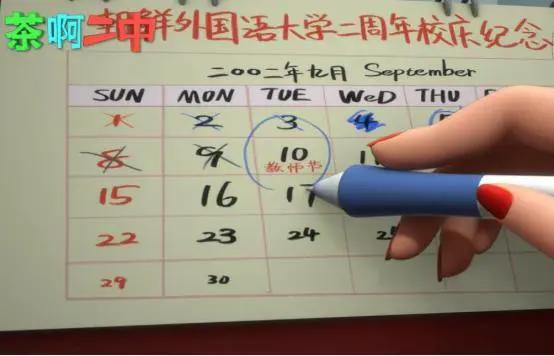 茶啊二中
外国语大学二周年校庆纪念
二〇〇二年九月 September
SUN MON TUE WeD THU
1 2 3 4
8 9 10
教师节
15 16 17
22 23 24
29 30